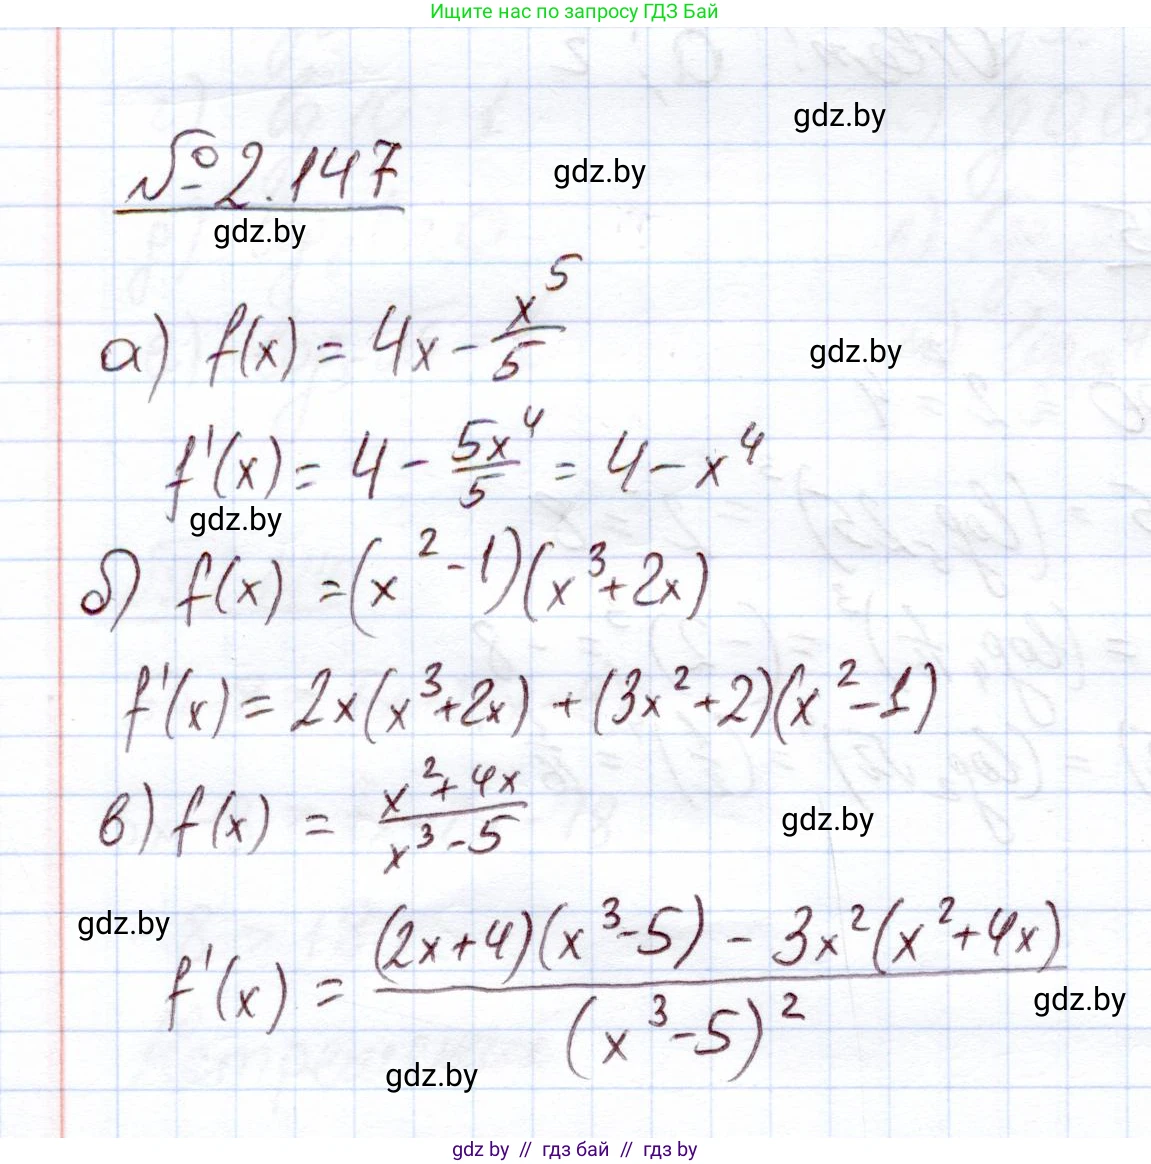 Ищите нас по запросу ГДЗ Бай
gdz.by
№ 2.147
gdz.by
gdz.by
а) f(x) = 4x - x^5/5
gdz.by
f'(x) = 4 - 5x^4/5 = 4 - x^4
gdz.by
б) f(x) = (x^2 - 1)(x^3 + 2x)
f'(x) = 2x(x^3 + 2x) + (3x^2 + 2)(x^2 - 1)
в) f(x) = (x^2 + 4x)/(x^3 - 5)
gdz.by
gdz.by
f'(x) = ((2x + 4)(x^3 - 5) - 3x^2(x^2 + 4x))/(x^3 - 5)^2
gdz.by
gdz.by
gdz by // гдз бай // гдз by